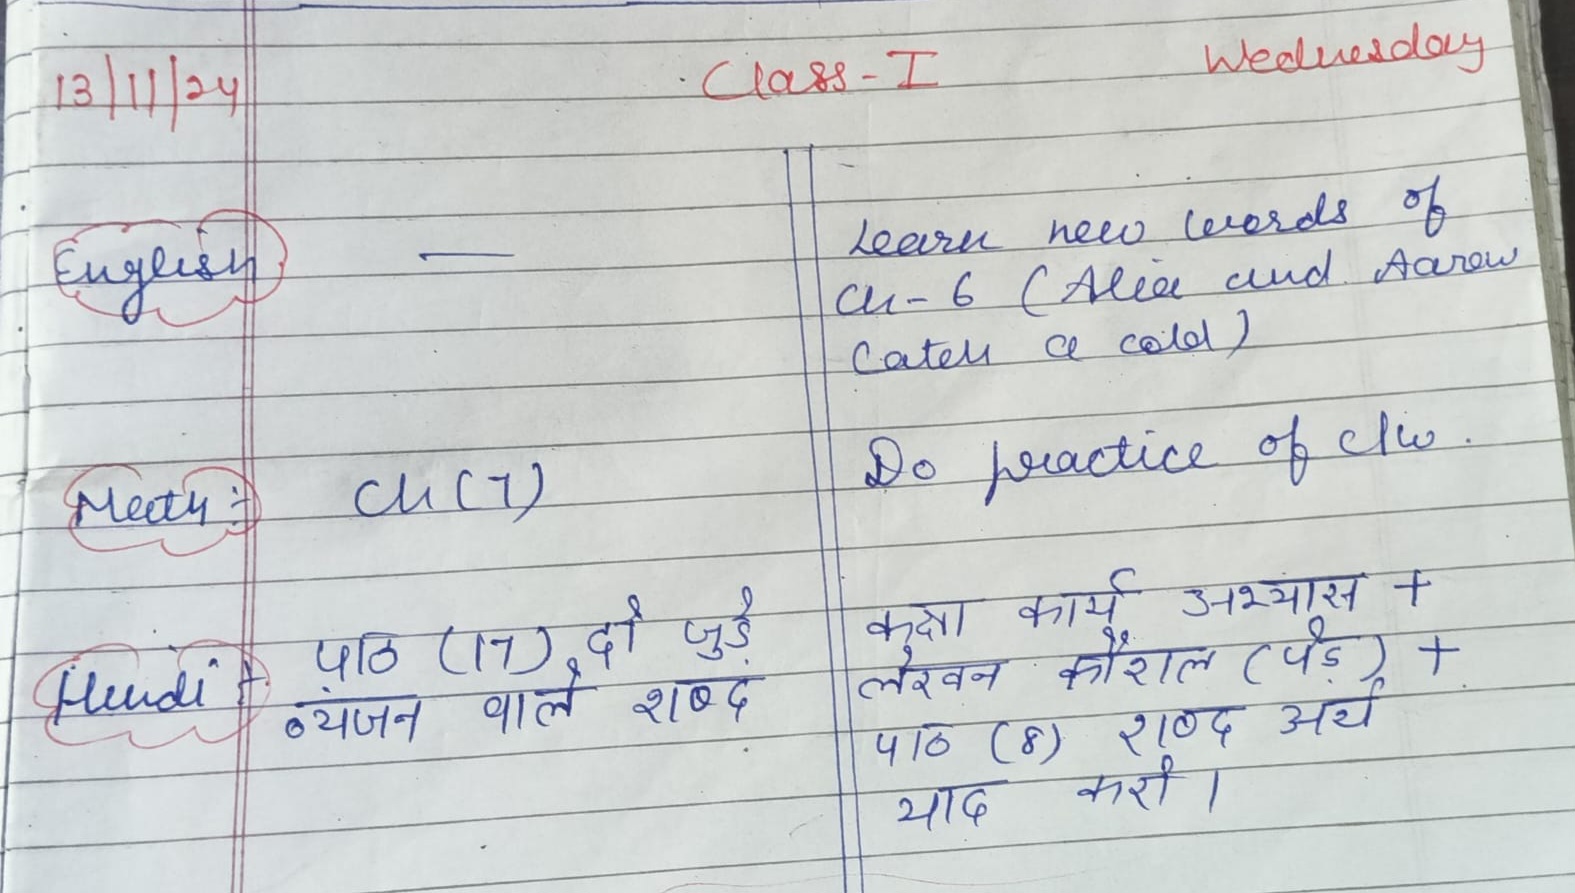 13/11/24 Class-I Wednesday
English — Learn new words of
Ch-6 (Alia and Aarav
Catch a cold)
Math :- Ch(7) Do practice of c/w.
Hindi :- पाठ (17) दो जुड़े
व्यंजन वाले शब्द
कक्षा कार्य अभ्यास +
लेखन कौशल (पेड़) +
पाठ (8) शब्द अर्थ
याद करो।